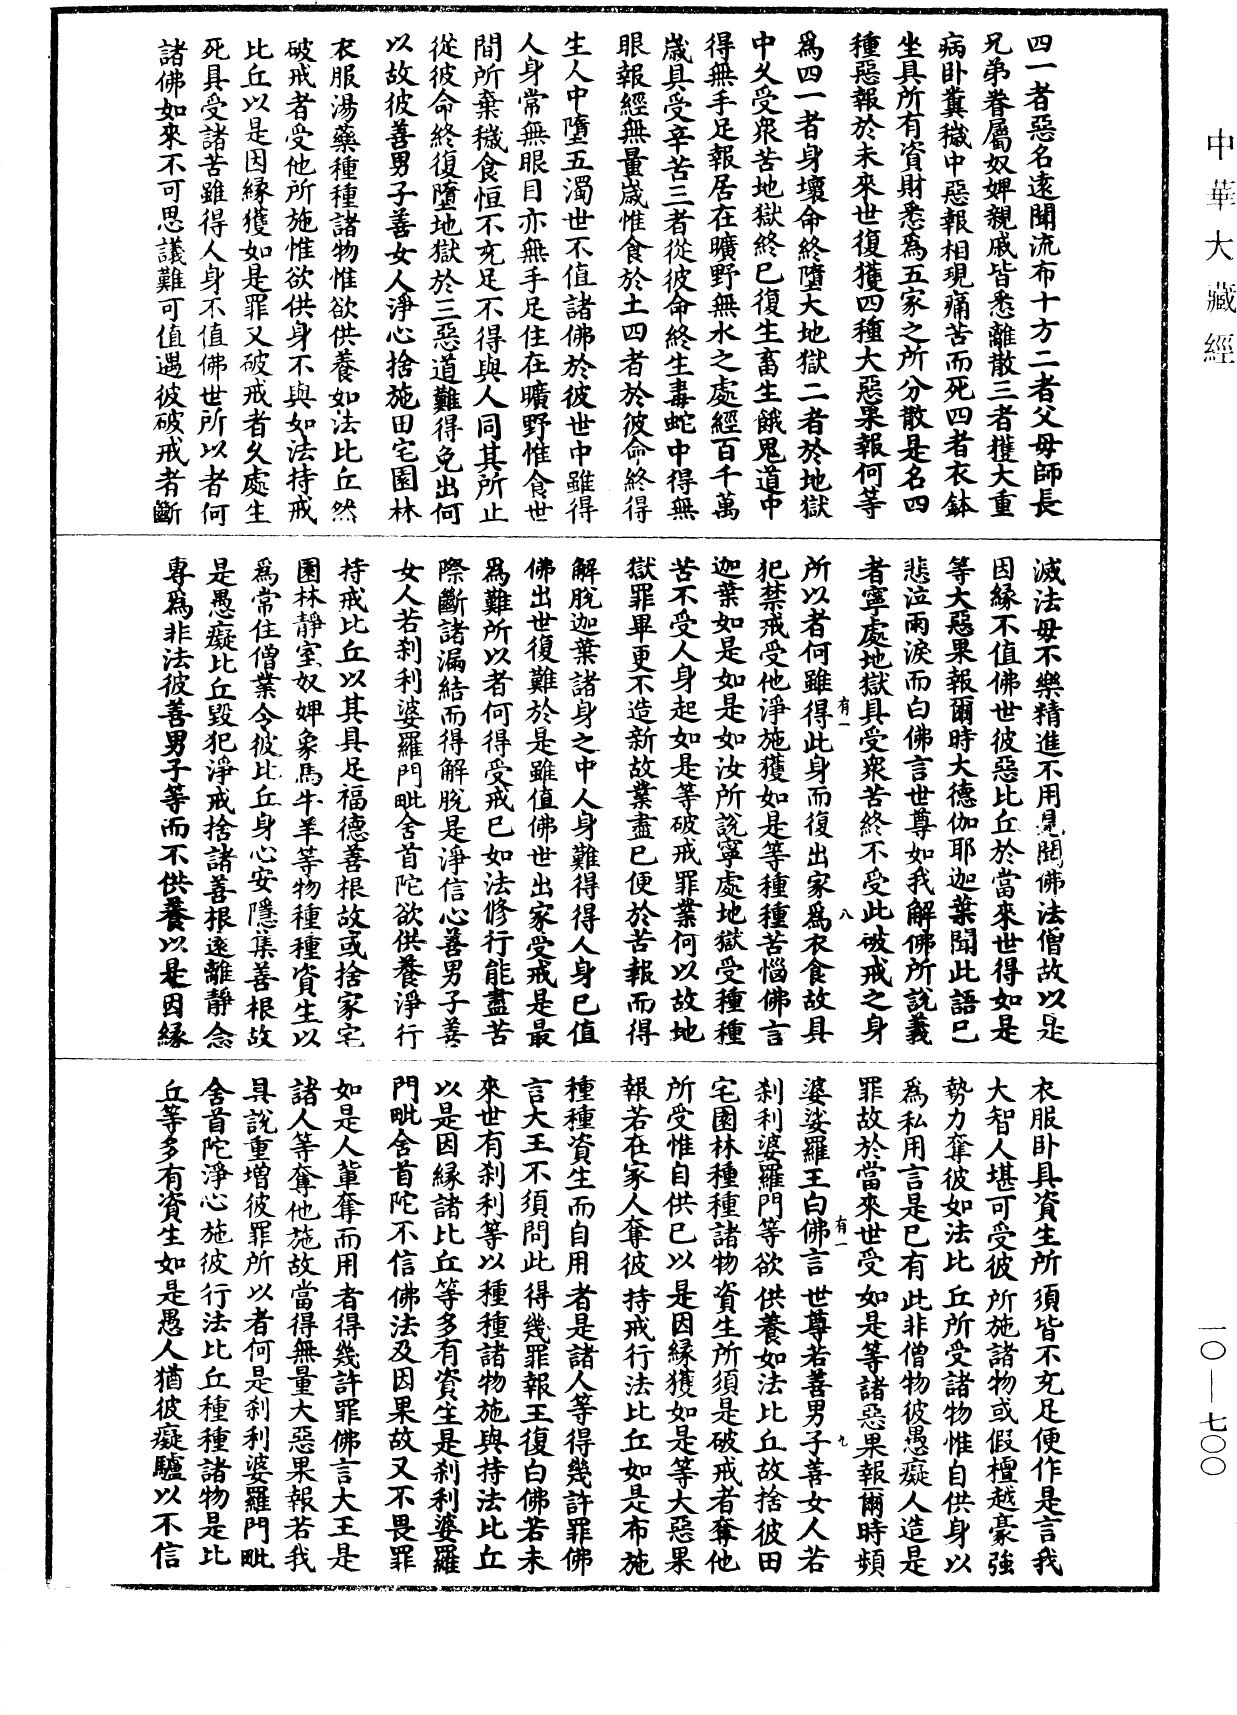 中華大藏經
四一者惡名遠聞流布十方二者父母師長
兄弟眷屬奴婢親戚皆悉離散三者獲大重
病卧糞穢中惡報相現痛苦而死四者衣鉢
坐具所有資財悉爲五家之所分散是名四
種惡報於未來世復獲四種大惡果報何等
爲四一者身壞命終墮大地獄二者於地獄
中久受衆苦地獄終已復生畜生餓鬼道中
得無手足報居在曠野無水之處經百千萬
歲具受辛苦三者從彼命終生毒蛇中得無
眼報經無量歲惟食於土四者於彼命終得
生人中墮五濁世不值諸佛於彼世中雖得
人身常無眼目亦無手足住在曠野惟食世
間所棄穢食恒不充足不得與人同其所止
從彼命終復墮地獄於三惡道難得免出何
以故彼善男子善女人淨心捨施田宅園林
衣服湯藥種種諸物惟欲供養如法比丘然
破戒者受他所施惟欲供身不與如法持戒
比丘以是因緣獲如是罪又破戒者久處生
死具受諸苦雖得人身不值佛世所以者何
諸佛如來不可思議難可值遇彼破戒者斷
滅法母不樂精進不用見聞佛法僧故以是
因緣不值佛世彼惡比丘於當來世得如是
等大惡果報爾時大德伽耶迦葉聞此語已
悲泣雨淚而白佛言世尊如我解佛所說義
者寧處地獄具受衆苦終不受此破戒之身
所以者何雖得此身而復出家爲衣食故具
有一
八
犯禁戒受他淨施獲如是等種種苦惱佛言
迦葉如是如是如汝所說寧處地獄受種種
苦不受人身起如是等破戒罪業何以故地
獄罪畢更不造新故業盡已便於苦報而得
解脫迦葉諸身之中人身難得得人身已值
佛出世復難於是雖值佛世出家受戒是最
爲難所以者何得受戒已如法修行能盡苦
際斷諸漏結而得解脫是淨信心善男子善
女人若刹利婆羅門毗舍首陀欲供養淨行
持戒比丘以其具足福德善根故或捨家宅
園林靜室奴婢象馬牛羊等物種種資生以
爲常住僧業令彼比丘身心安隱集善根故
是愚癡比丘毀犯淨戒捨諸善根遠離靜念
專爲非法彼善男子等而不供養以是因緣
衣服卧具資生所須皆不充足便作是言我
大智人堪可受彼所施諸物或假檀越豪強
勢力奪彼如法比丘所受諸物惟自供身以
爲私用言是已有此非僧物彼愚癡人造是
罪故於當來世受如是等諸惡果報爾時頻
婆娑羅王白佛言世尊若善男子善女人若
有一
九
刹利婆羅門等欲供養如法比丘故捨彼田
宅園林種種諸物資生所須是破戒者奪他
所受惟自供已以是因緣獲如是等大惡果
報若在家人奪彼持戒行法比丘如是布施
種種資生而自用者是諸人等得幾許罪佛
言大王不須問此得幾罪報王復白佛若未
來世有刹利等以種種諸物施與持法比丘
以是因緣諸比丘等多有資生是刹利婆羅
門毗舍首陀不信佛法及因果故又不畏罪
如是人軰奪而用者得幾許罪佛言大王是
諸人等奪他施故當得無量大惡果報若我
具說重增彼罪所以者何是刹利婆羅門毗
舍首陀淨心施彼行法比丘種種諸物是比
丘等多有資生如是愚人猶彼癡驢以不信
一〇—七〇〇